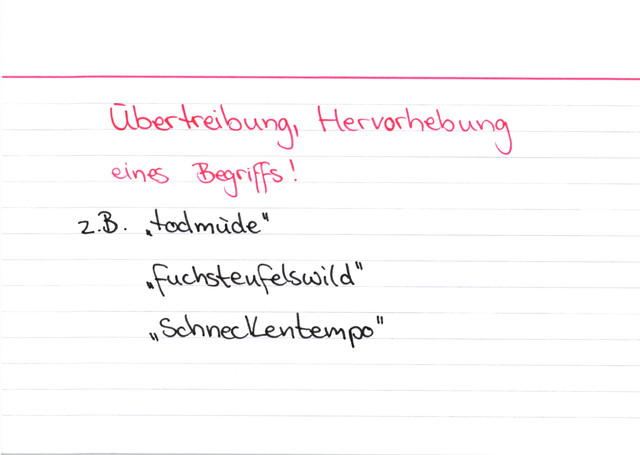 Übertreibung, Hervorhebung
eines Begriffs!
z.B. „todmüde"
„fuchsteufelswild"
„Schneckentempo"